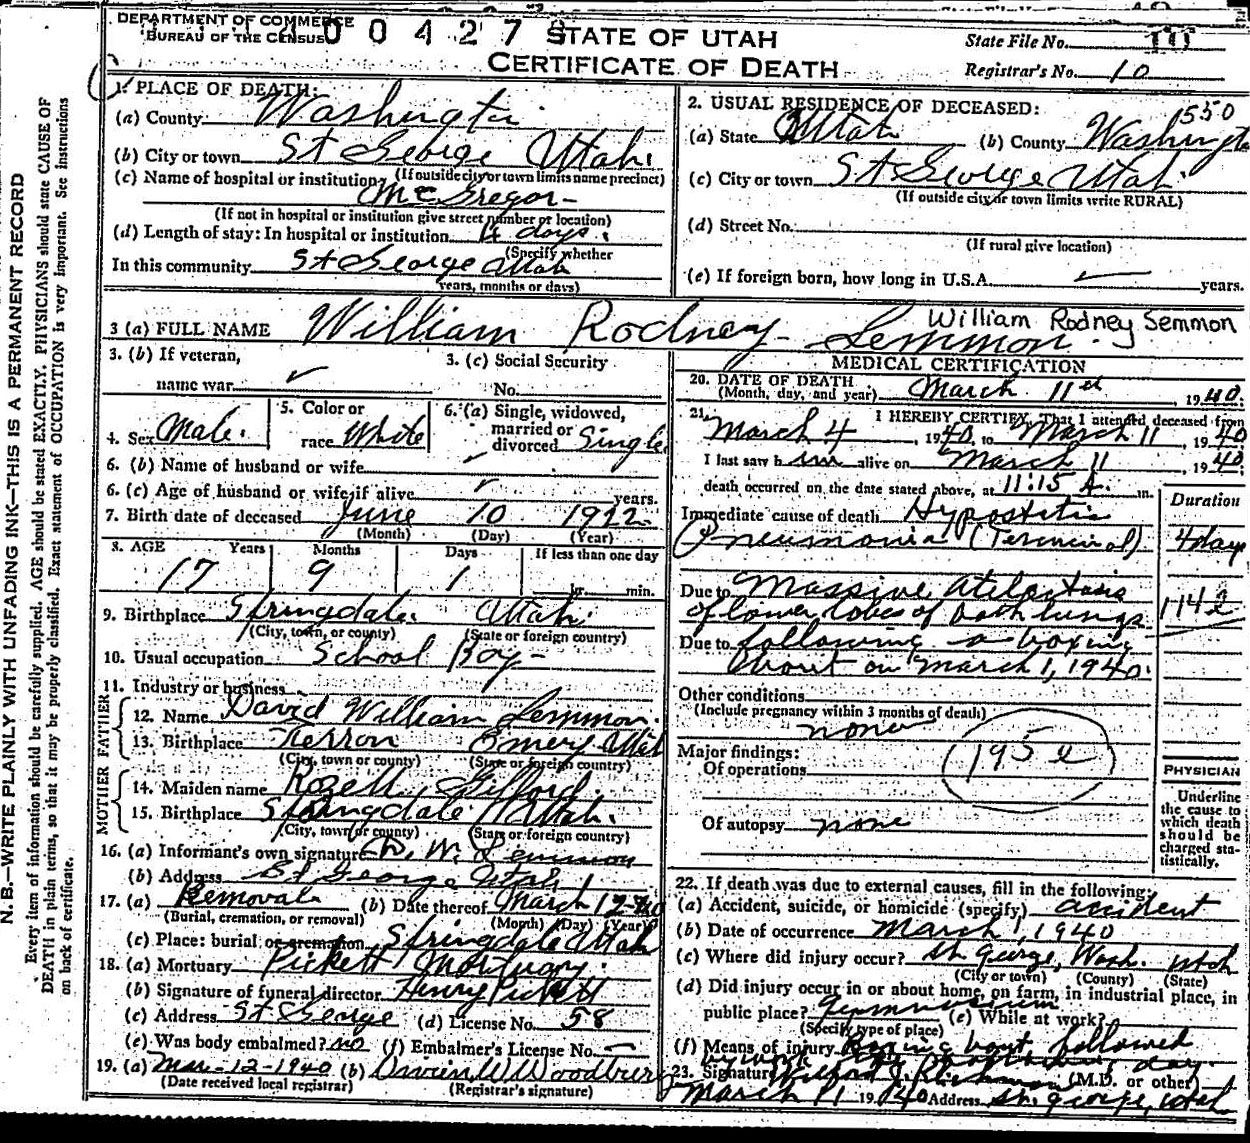 DEPARTMENT OF COMMERCE
BUREAU OF THE CENSUS
0 0 4 2 7
STATE OF UTAH
CERTIFICATE OF DEATH
State File No.
Registrar's No. 10
N. B.—WRITE PLAINLY WITH UNFADING INK—THIS IS A PERMANENT RECORD
Every item of information should be carefully supplied. AGE should be stated EXACTLY. PHYSICIANS should state CAUSE OF
DEATH in plain terms, so that it may be properly classified. Exact statement of OCCUPATION is very important. See instructions
on back of certificate.
1. PLACE OF DEATH:
(a) County Washington
(b) City or town St George Utah.
(If outside city or town limits name precinct)
(c) Name of hospital or institution
McGregor
(If not in hospital or institution give street number or location)
(d) Length of stay: In hospital or institution 4 days.
(Specify whether
In this community St George Utah
years, months or days)
2. USUAL RESIDENCE OF DECEASED:
1550
(a) State Utah (b) County Washington
(c) City or town St George Utah.
(If outside city or town limits write RURAL)
(d) Street No.
(If rural give location)
(e) If foreign born, how long in U.S.A. years.
3 (a) FULL NAME William Rodney Lemmon.
William Rodney Semmon
3. (b) If veteran,
name war
3. (c) Social Security
No.
4. Sex Male.
5. Color or
race White
6. (a) Single, widowed,
married or
divorced Single
6. (b) Name of husband or wife
6. (c) Age of husband or wife if alive years.
7. Birth date of deceased June 10 1922
(Month) (Day) (Year)
8. AGE Years Months Days If less than one day
17 9 1 hr. min.
9. Birthplace Springdale. Utah.
(City, town, or county) (State or foreign country)
10. Usual occupation School Boy
11. Industry or business
FATHER
12. Name David William Lemmon.
13. Birthplace Ferron Emery Utah
(City, town or county) (State or foreign country)
MOTHER
14. Maiden name Gifford
15. Birthplace Springdale Utah.
(City, town or county) (State or foreign country)
16. (a) Informant's own signature D. W. Lemmon
(b) Address St George Utah
17. (a) Removal (b) Date thereof March 12 40
(Burial, cremation, or removal) (Month) (Day) (Year)
(c) Place: burial or cremation Springdale Utah
18. (a) Mortuary Pickett Mortuary.
(b) Signature of funeral director Henry Pickett
(c) Address St George (d) License No. 58
(e) Was body embalmed? no (f) Embalmer's License No.
19. (a) Mar-12-1940 (b) Owen W Woodbury
(Date received local registrar) (Registrar's signature)
MEDICAL CERTIFICATION
20. DATE OF DEATH
(Month, day, and year) March 11th, 1940.
21. I HEREBY CERTIFY, That I attended deceased from
March 4, 1940, to March 11, 1940
I last saw him alive on March 11, 1940.
death occurred on the date stated above, at 11:15 A. m.
Duration
Immediate cause of death Hypostatic
Pneumonia (Terminal) 4 days
Due to Massive Atelectasis
of lower lobes of both lungs
Due to following a boxing
bout on March 1, 1940.
Other conditions
(Include pregnancy within 3 months of death)
none
Major findings:
Of operations
195 e
Of autopsy none
PHYSICIAN
Underline
the cause to
which death
should be
charged sta-
tistically.
22. If death was due to external causes, fill in the following:
(a) Accident, suicide, or homicide (specify) accident
(b) Date of occurrence March 1, 1940
(c) Where did injury occur? St. George, Wash. Utah
(City or town) (County) (State)
(d) Did injury occur in or about home, on farm, in industrial place, in
public place? Gymnasium (e) While at work?
(Specify type of place)
(f) Means of injury Boxing bout followed
by day.
23. Signature (M.D. or other)
March 11 1940 Address St. George, Utah